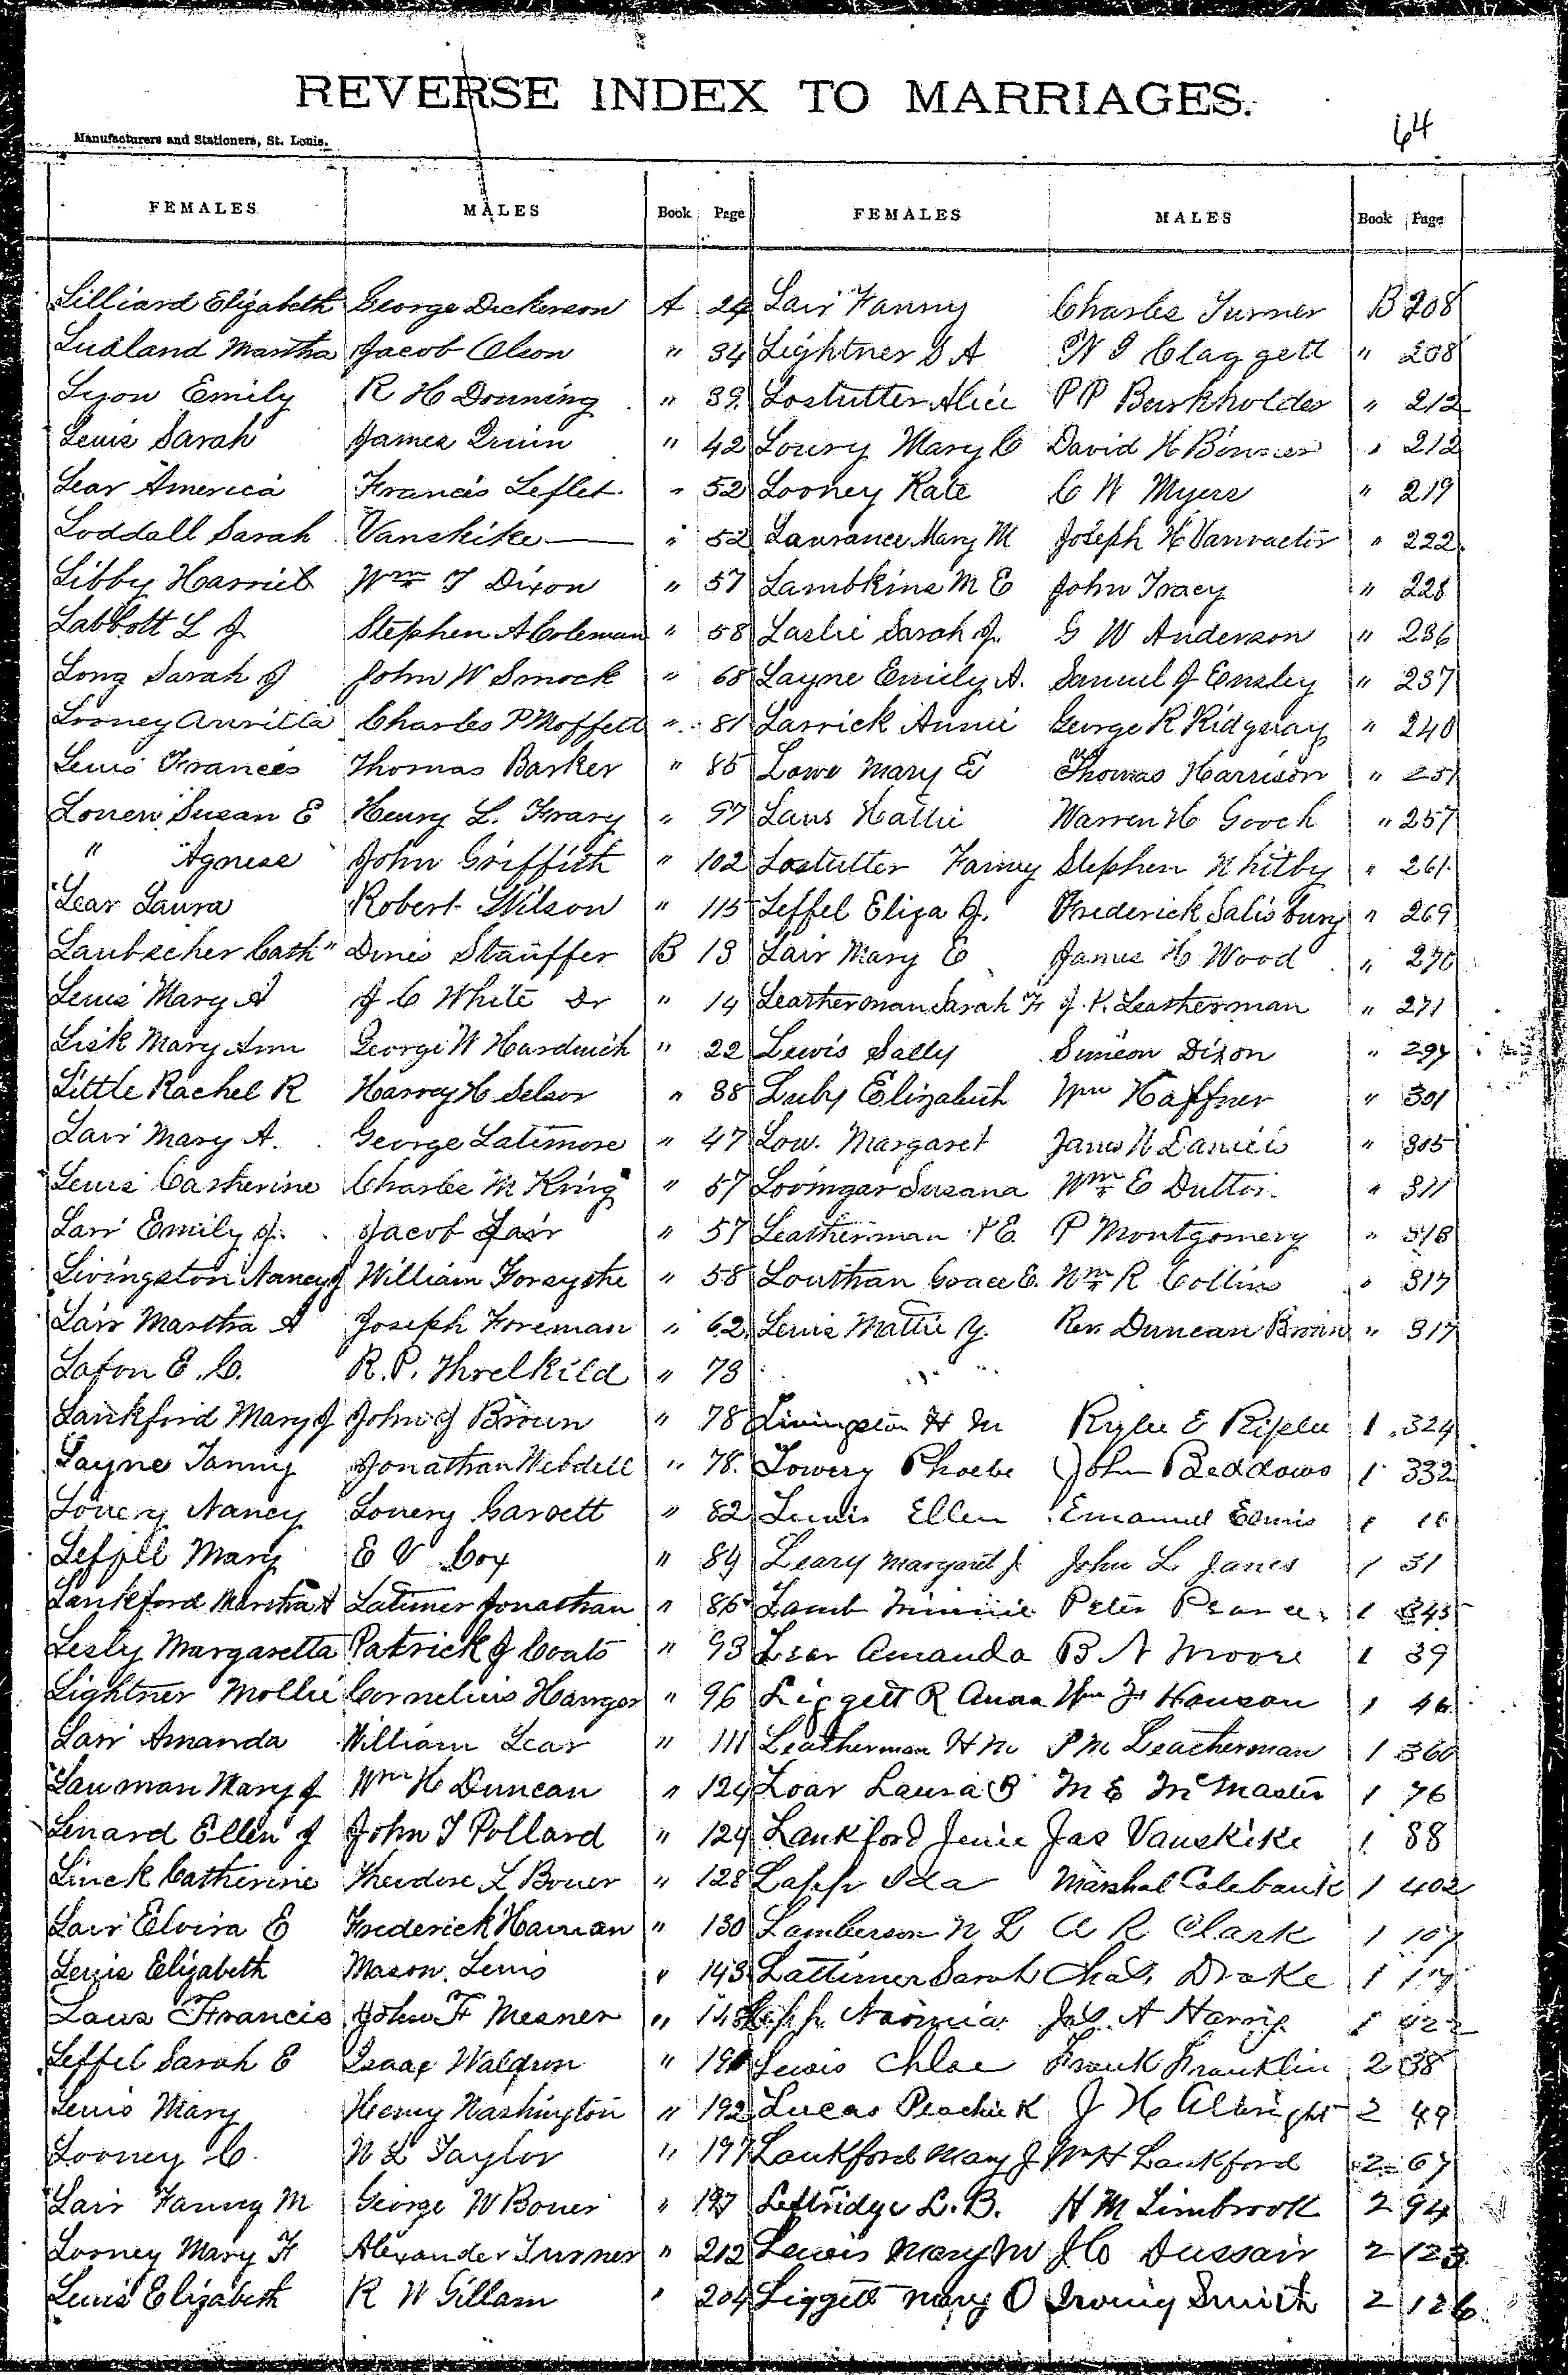 REVERSE INDEX TO MARRIAGES.
64
Manufacturers and Stationers, St. Louis.
FEMALES MALES Book Page FEMALES MALES Book Page
Lilliard Elizabeth George Dickerson A 24 Lair Fanny Charles Turner B 208
Ludland Martha Jacob Olson " 34 Lightner S A W I Claggett " 208
Lyon Emily R H Downing " 39 Lostutter Alice P P Burkholder " 212
Lewis Sarah James Quinn " 42 Loury Mary C David H Bonner " 212
Lear America Francis Leflet " 52 Looney Kate C W Myers " 219
Loddall Sarah Vanskike — " 52 Laurance Mary M Joseph H Vanvactor " 222
Libby Harriet Wm T Dixon " 57 Lambkins M E John Tracy " 228
Labbott L J Stephen A Coleman " 58 Laslie Sarah J. G W Anderson " 236
Long Sarah J John W Smock " 68 Layne Emily A. Samuel J Ensley " 237
Looney Aurilla Charles P Moffett " 81 Larrick Annie George R Ridgway " 240
Lewis Frances Thomas Barker " 85 Lowe Mary E Thomas Harrison " 251
Lowen Susan E Henry L. Frary " 97 Laws Hattie Warren H Gooch " 257
" Agness John Griffith " 102 Lostutter Fanny Stephen Whitby " 261
Lear Laura Robert Wilson " 115 Leffel Eliza J. Frederick Salisbury " 269
Laubscher Cath" Dinis Stauffer B 13 Lair Mary E James H Wood " 270
Lewis Mary A J C White Dr " 14 Leatherman Sarah F J. K. Leatherman " 271
Lisk Mary Ann George W Hardwick " 22 Lewis Sally Simeon Dixon " 297
Little Rachel R Harvey H Selsor " 38 Luby Elizabeth Wm Haffner " 301
Lair Mary A. George Latimore " 47 Low. Margaret James W Daniels " 305
Lewis Catherine Charles M King " 57 Lovingar Susana Wm E Dutton " 311
Lair Emily J. Jacob Lair " 57 Leatherman E. P Montgomery " 318
Livingston Nancy J William Forsythe " 58 Louthan Grace E. Wm R Collins " 317
Lair Martha A Joseph Foreman " 62 Lewis Mattie Y. Rev Duncan Brown " 317
Lafon E. C. R. P. Threlkild " 73
Lankford Mary J John J Brown " 78 Livingston H M Rylie E Riplee 1 324
Layne Fanny Jonathan Webdell " 78 Lowery Phoebe John Beddows 1 332
Lowery Nancy Lowery Garvett " 82 Lewis Ellen Emanuel Ennis 1 16
Leffell Mary E V Cox " 84 Leary Margaret J. John L Janes 1 31
Lankford Martha A Latimer Jonathan " 86 Lamb Minnie Peter Pearce 1 345
Lesly Margaretta Patrick J Coats " 93 Lear Amanda B N Moore 1 39
Lightner Mollie Cornelius Hanger " 96 Liggett R Anna Wm J Hanson 1 46
Lair Amanda William Lear " 111 Leatherman H M P M Leatherman 1 360
Lauman Mary J Wm H Duncan " 124 Loar Laura B M E McMaster 1 76
Lenard Ellen J John T Pollard " 124 Lankford Jenie Jas Vanskike 1 88
Linck Catherine Theodore L Bower " 128 Lapp Ida Marshal Colebank 1 402
Lair Elvira E Frederick Haman " 130 Lamberson N L A R Clark 1 107
Lewis Elizabeth Mason Lewis " 143 Lattimer Sarah Chas. Drake 1
Laws Francis John F Mesner " 148 Lapp Naomia Jas. A Harris 1 422
Leffel Sarah E Isaac Waldron " 190 Lewis Chloe Frank Franklin 2 38
Lewis Mary Henry Washington " 192 Lucas Peachie K J H Albright 2 49
Looney C. N L Taylor " 197 Lankford Mary J Wm H Lankford 2 67
Lair Fanny M George W Bower " 197 Leftridge L. B. H M Limbrook 2 94
Looney Mary F Alexander Turner " 212 Lewis Mary M J C Dussair 2 123
Lewis Elizabeth R W Gillam " 204 Liggett Mary O Irving Smith 2 126